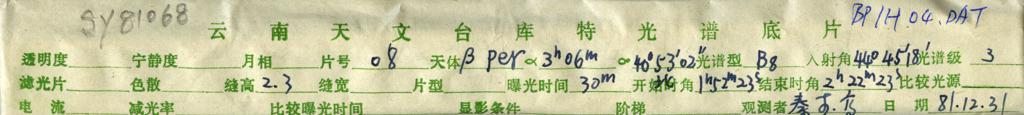 SY81068
云南天文台库特光谱底片 BP/H.04.DAT
透明度 宁静度 月相 片号 08 天体 β per α 3h06m α 40°53′02″ 光谱型 B8 入射角 44°45′18″ 光谱级 3
滤光片 色散 缝高 2.3 缝宽 片型 曝光时间 30m 开始时角 1h52m23s 结束时角 2h22m23s 比较光源
电流 减光率 比较曝光时间 显影条件 阶梯 观测者 秦 日期 81.12.31